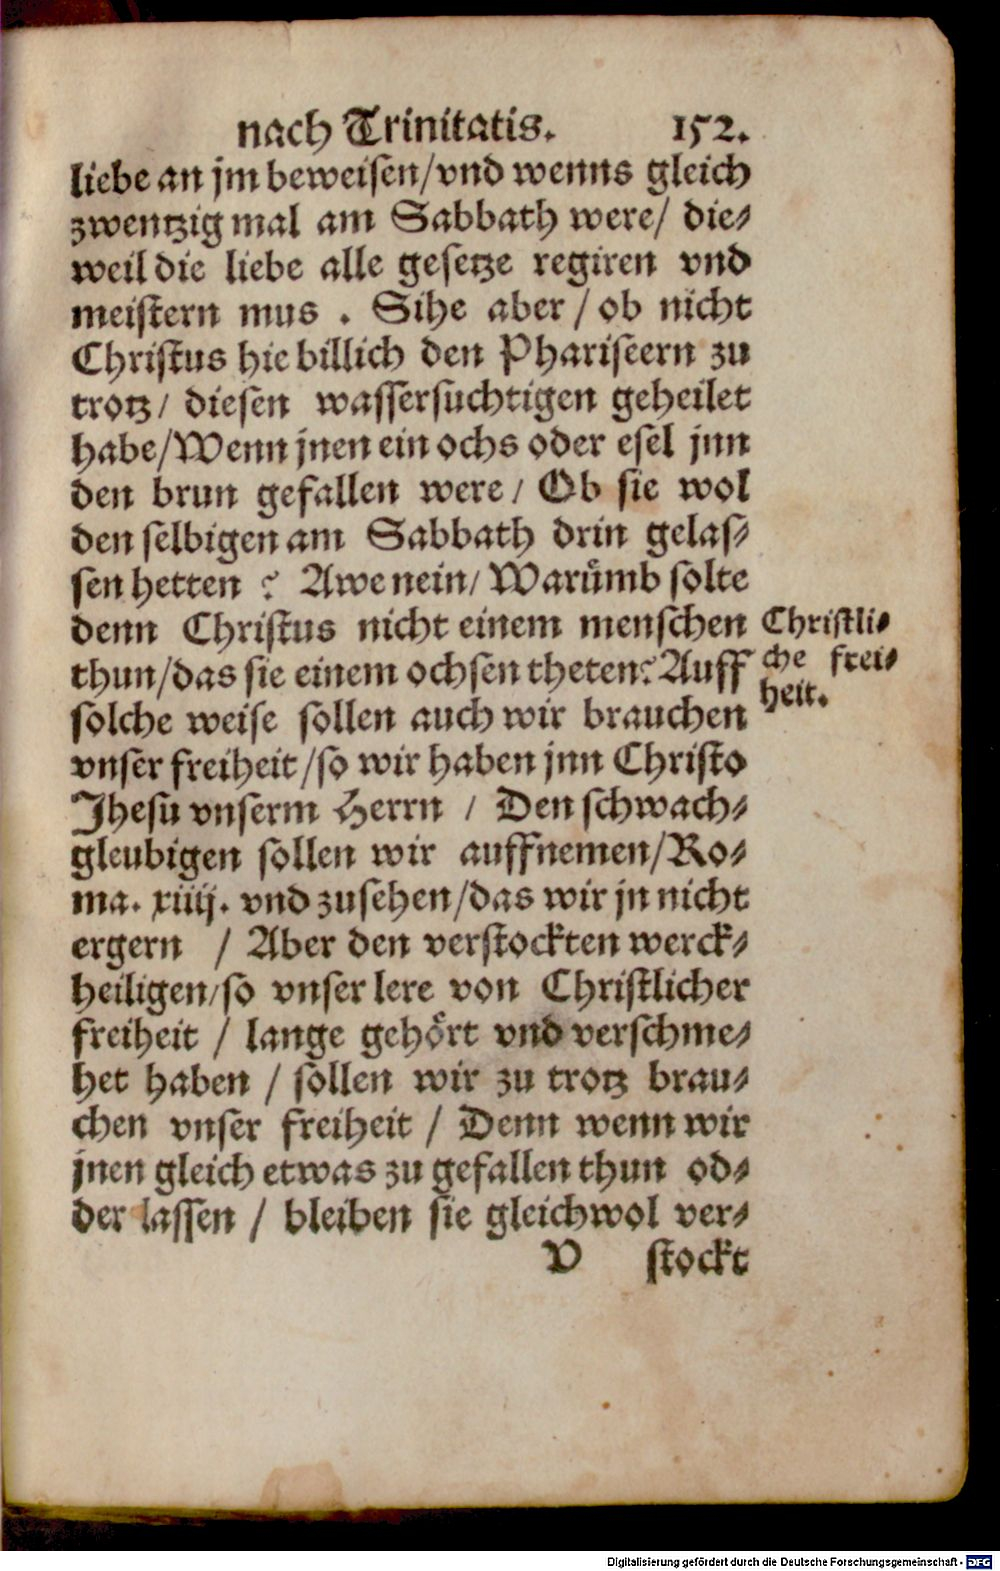 nach Trinitatis. 152.
liebe an jm beweisen/vnd wenns gleich
zwentzig mal am Sabbath were/ die⸗
weil die liebe alle gesetze regiren vnd
meistern mus . Sihe aber / ob nicht
Christus hie billich den Phariseern zu
trotz/ diesen wassersuchtigen geheilet
habe/Wenn jnen ein ochs oder esel jnn
den brun gefallen were/ Ob sie wol
den selbigen am Sabbath drin gelas⸗
sen hetten ? Awe nein/ Warümb solte
denn Christus nicht einem menschen
thun/das sie einem ochsen theten? Auff
solche weise sollen auch wir brauchen
vnser freiheit/so wir haben jnn Christo
Jhesu vnserm Herrn / Den schwach⸗
gleubigen sollen wir auffnemen/Ro⸗
ma. xiiij. vnd zusehen/das wir jn nicht
ergern / Aber den verstockten werck⸗
heiligen/so vnser lere von Christlicher
freiheit / lange gehört vnd verschme⸗
het haben / sollen wir zu trotz brau⸗
chen vnser freiheit / Denn wenn wir
jnen gleich etwas zu gefallen thun od⸗
der lassen / bleiben sie gleichwol ver⸗
V stockt
Christli⸗
che frei⸗
heit.
Digitalisierung gefördert durch die Deutsche Forschungsgemeinschaft - DFG